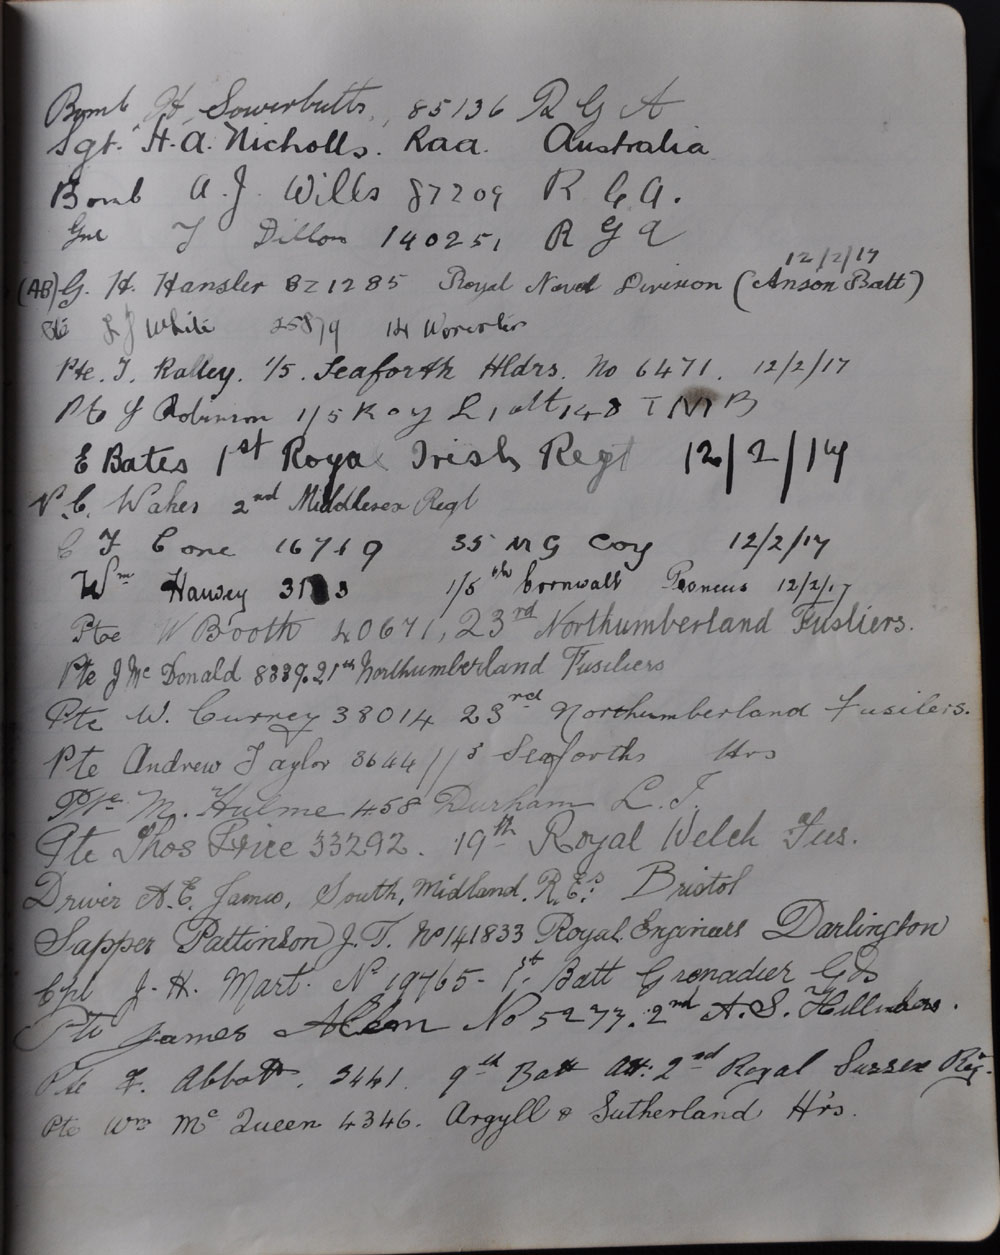 Bomb H. Sowerbutts, 85136 R G A
Sgt. H. A. Nicholls. Raa. Australia
Bomb A. J. Wills 87209 R G A.
Gnr J Dillon 140251 R G A
12/2/17
(AB) G. H. Hansler BZ1285 Royal Naval Division (Anson Batt)
Pte L J White 14 Worcester
Pte. J. Ralley. 1/5. Seaforth Hldrs. No 6471. 12/2/17
Pte J Robinson 1/5 K O Y L I att 148 T M B
E Bates 1st Royal Irish Regt 12/2/17
V. C. Wakes 2nd Middlesex Regt
C F Cone 16719 35 M G Coy 12/2/17
Wm 1/5th Cornwall Pioneers 12/2/17
Pte W Booth 40671, 23rd Northumberland Fusliers.
Pte J Mc Donald 8339. 21st Northumberland Fusiliers
Pte W. Currey 38014 23rd Northumberland Fusilers.
Pte Andrew Taylor 3644 1/5 Seaforths Hrs
Pte. M. Hulme 458 Durham L. I.
Pte Thos Price 33292. 19th Royal Welch Fus.
Driver A. E. James, South, Midland. R. E.s Bristol
Sapper Pattinson J. T. No 141833 Royal Engineers Darlington
Cpl J. H. Mart. No 19765 - 1st Batt Grenadier Gds
Pte James Allen No 5277. 2nd A. S. Hillnders.
Pte F. Abbott. 3441. 9th Batt Att: 2nd Royal Sussex Reg.
Pte Wm Mc Queen 4346. Argyll & Sutherland Hrs.